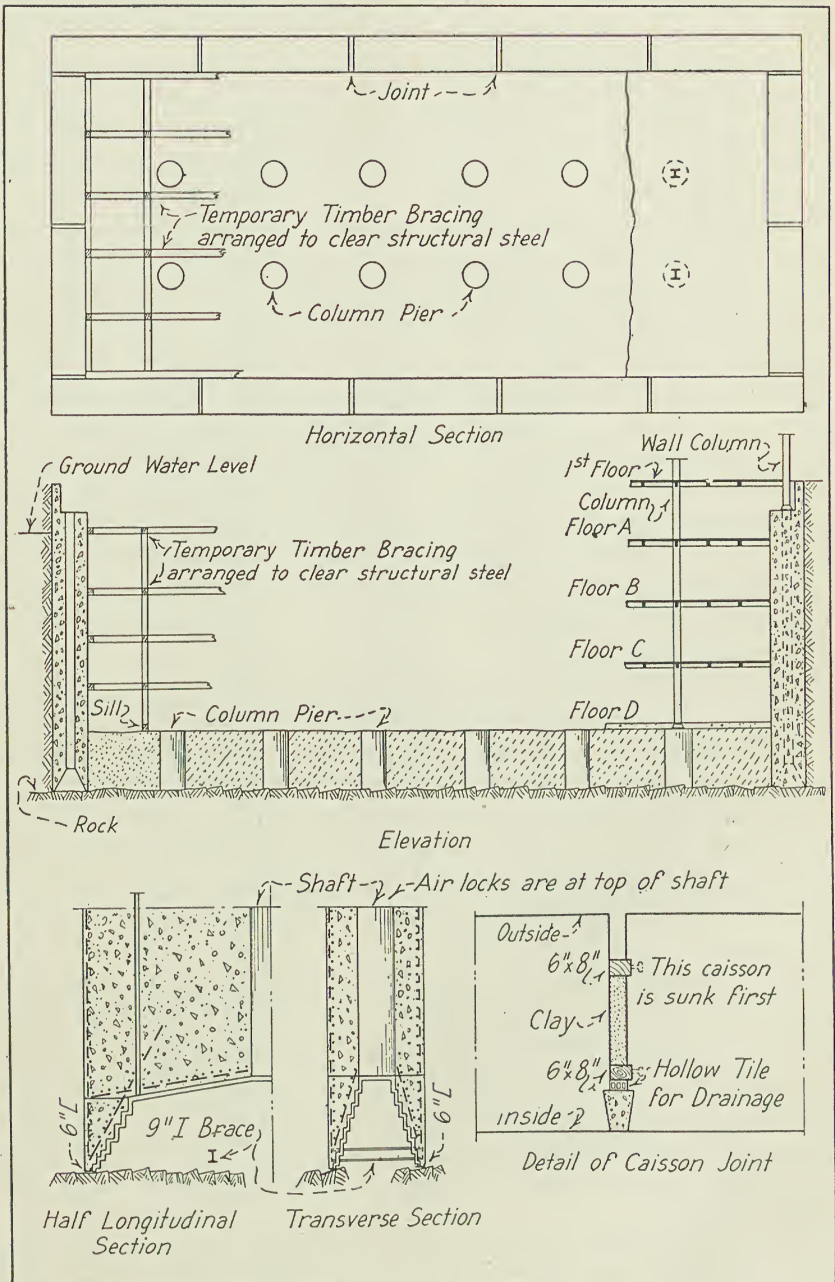 Joint
Temporary Timber Bracing
arranged to clear structural steel
Column Pier
Horizontal Section
Ground Water Level
Wall Column
1st Floor
Column
Floor A
Temporary Timber Bracing
arranged to clear structural steel
Floor B
Floor C
Sill
Column Pier
Floor D
Rock
Elevation
Shaft
Air locks are at top of shaft
Outside
6"x8"
This caisson
is sunk first
Clay
6"x8"
Hollow Tile
for Drainage
inside
9" I Brace
I
Detail of Caisson Joint
Half Longitudinal
Section
Transverse Section
I
I